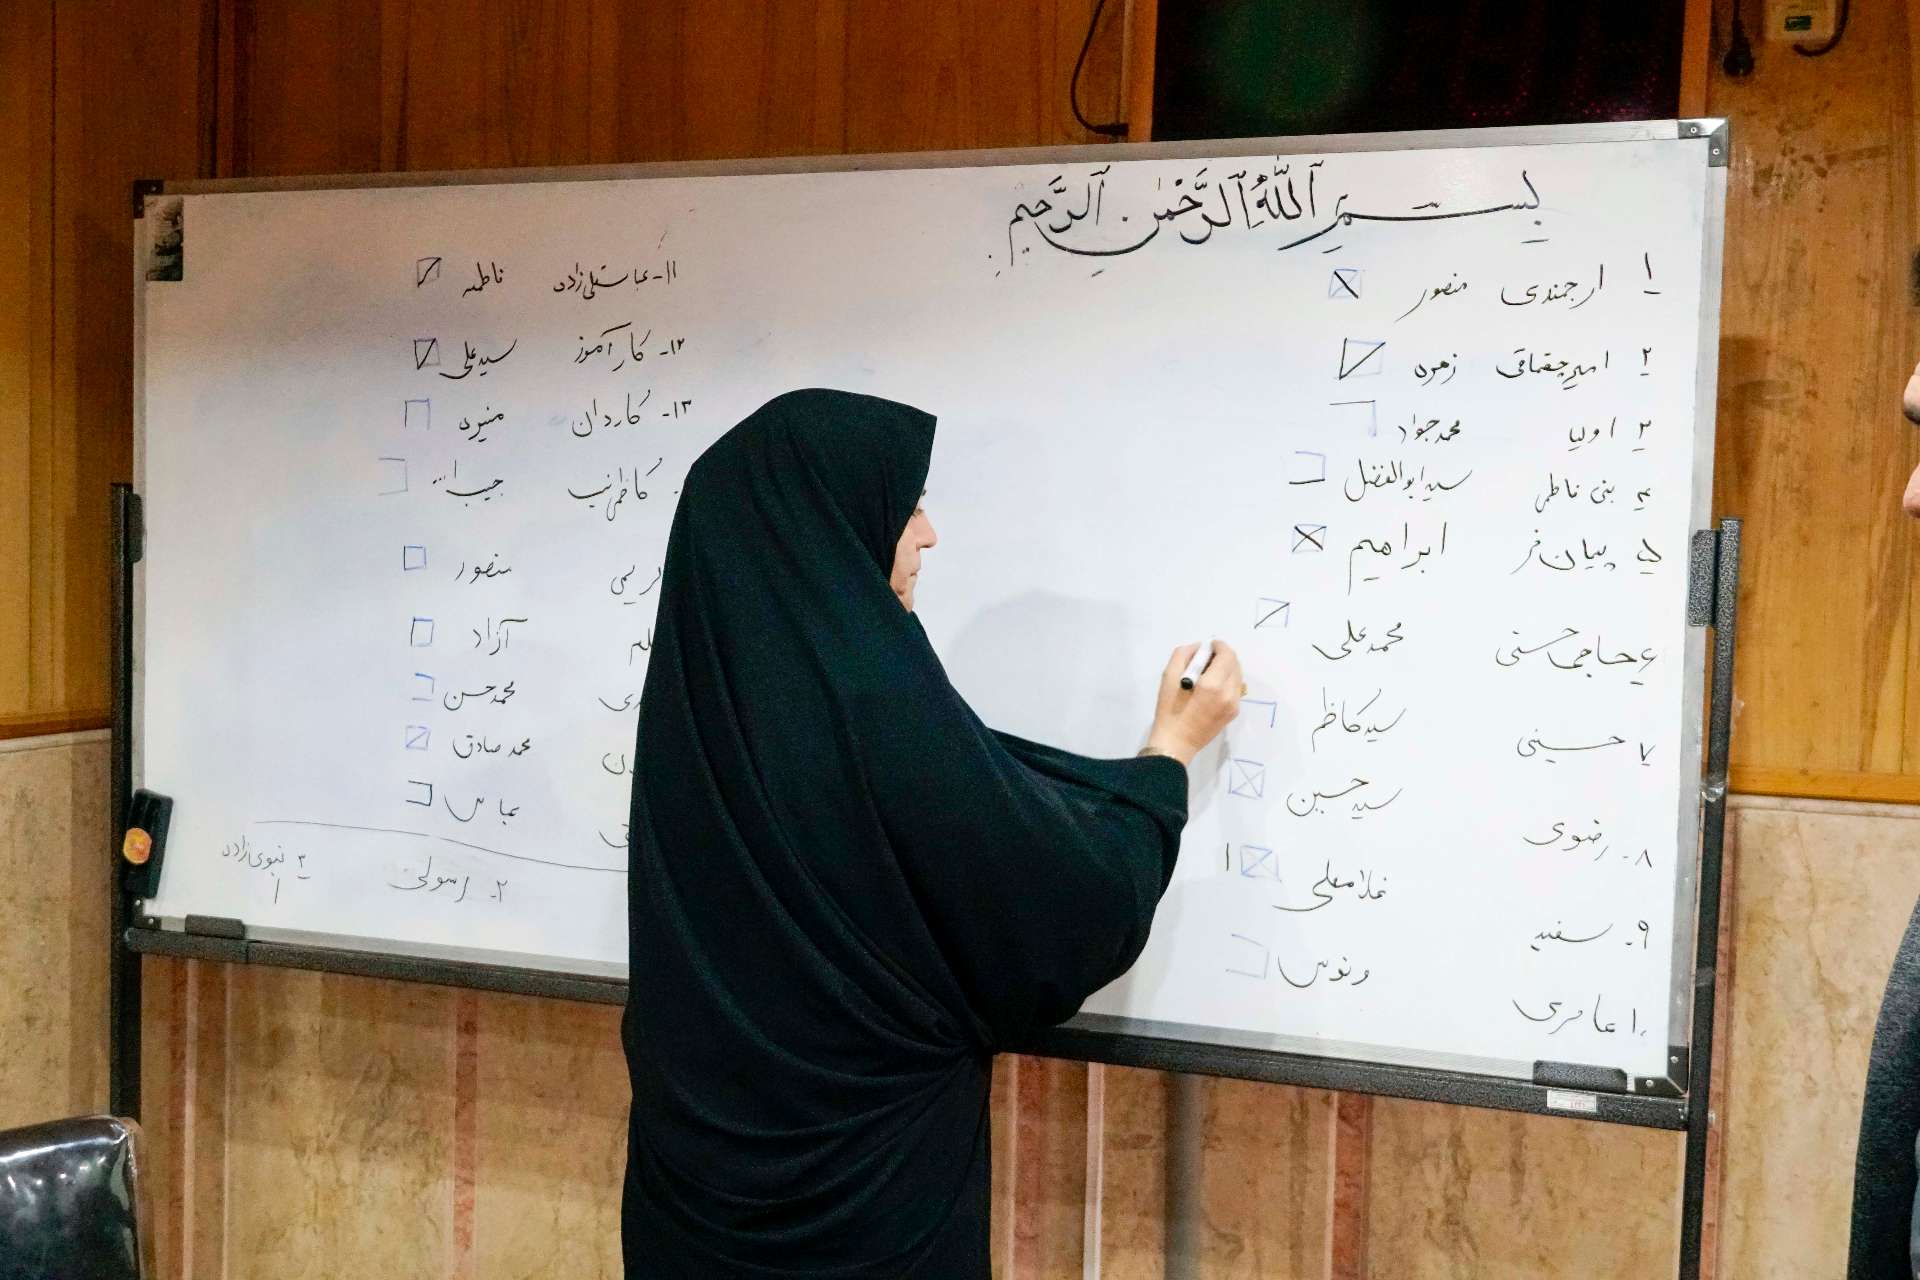 بِسْمِ ٱللَّهِ ٱلرَّحْمٰنِ ٱلرَّحِيمِ
۱ ارجمندی منصور
۲ امیرچقماقی زهره
۳ اولیا محمدجواد
۴ بنی فاطمی سیدابوالفضل
۵ پیمان‌فر ابراهیم
۶ حاجی حسنی محمدعلی
۷ حسینی سیدکاظم
۸- رضوی سیدحسین
۹- سفید غلامعلی ۱
۱۰ عامری ونوس
۱۱- عباسقلی‌زاده فاطمه
۱۲- کارآموز سیدعلی
۱۳- کاردان منیره
کاظمی‌نسب حبیب ا...
کریمی منصور
آزاد
محمدحسن
محمدصادق
عباس
۲- رسولی
۳ نبوی‌زاده
۱